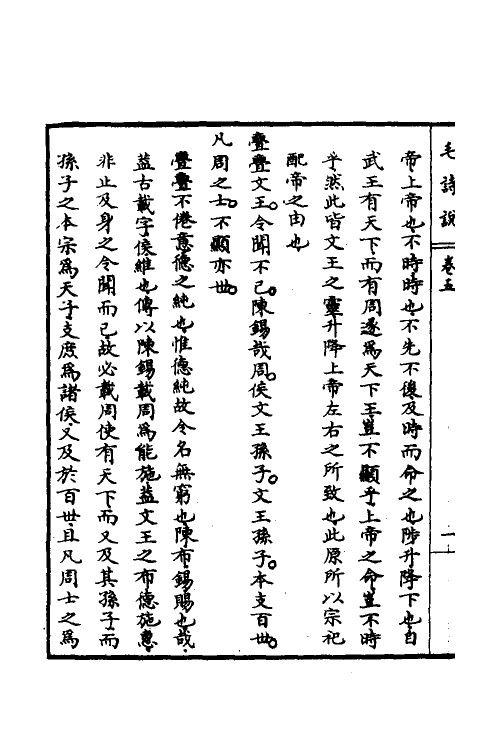 毛詩説 卷五 一
帝上帝也不時時也不先不後及時而命之也陟升降下也自
武王有天下而有周遂爲天下王豈不顯乎上帝之命豈不時
乎然此皆文王之靈升降上帝左右之所致也此原所以宗祀
配帝之由也
亹亹文王令聞不已陳錫哉周侯文王孫子文王孫子本支百世
凡周之士不顯亦世
亹亹不倦意德之純也惟德純故令名無窮也陳布錫賜也哉
蓋古載字侯維也傳以陳錫載周爲能施蓋文王之布德施惠
非止及身之令聞而已故必載周使有天下而又及其孫子而
孫子之本宗爲天子支庶爲諸侯又及於百世且凡周士之爲